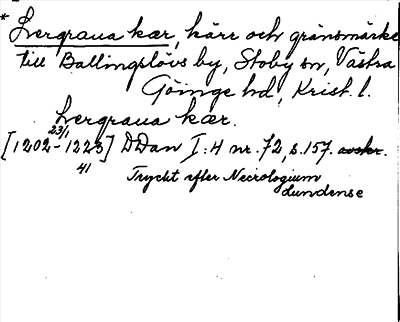 * Lergraua kær, kärr och gränsmärke
till Ballingslövs by, Stoby sn, Västra
Göinge hd, Krist. l.
Lergraua kær.
23/1
[1202-1223] DDan I:4 nr. 72, s. 157. avskr.
41
Tryckt efter Necrologium
Lundense